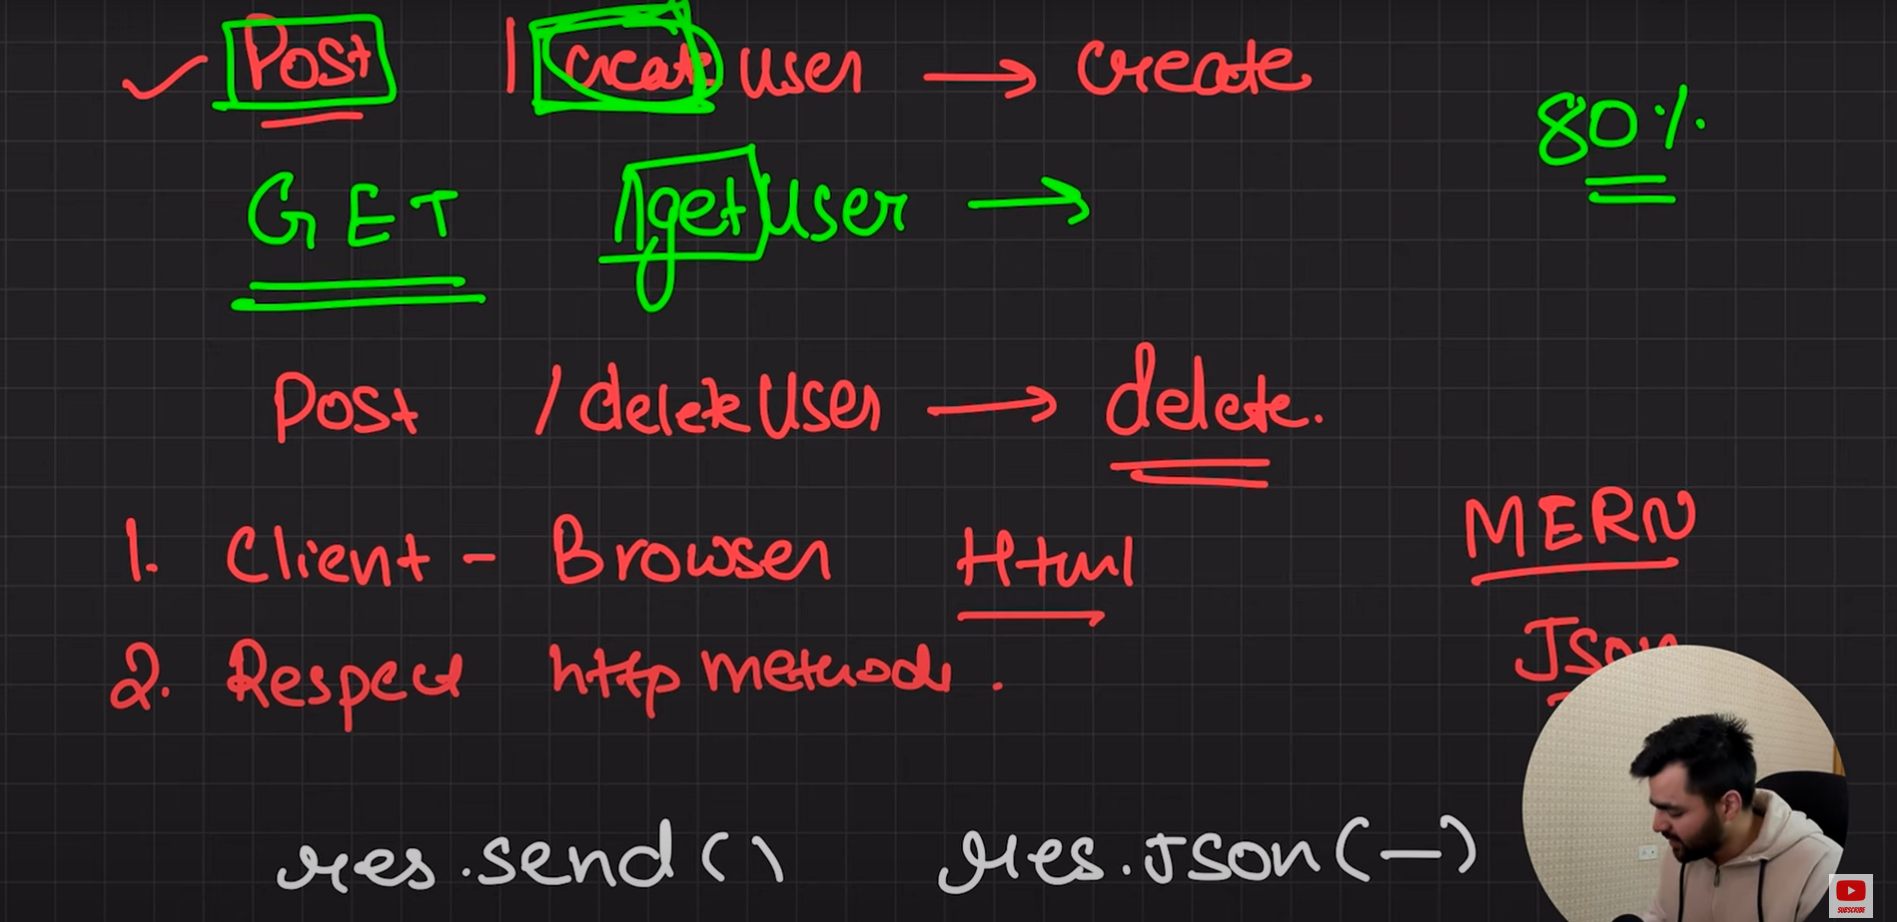 Post /createuser → create
80%
GET /getUser →
Post /deleteUser → delete.
1. Client - Browser Html
MERN
2. Respect http methods.
Json
res.send() res.Json(—)
SUBSCRIBE